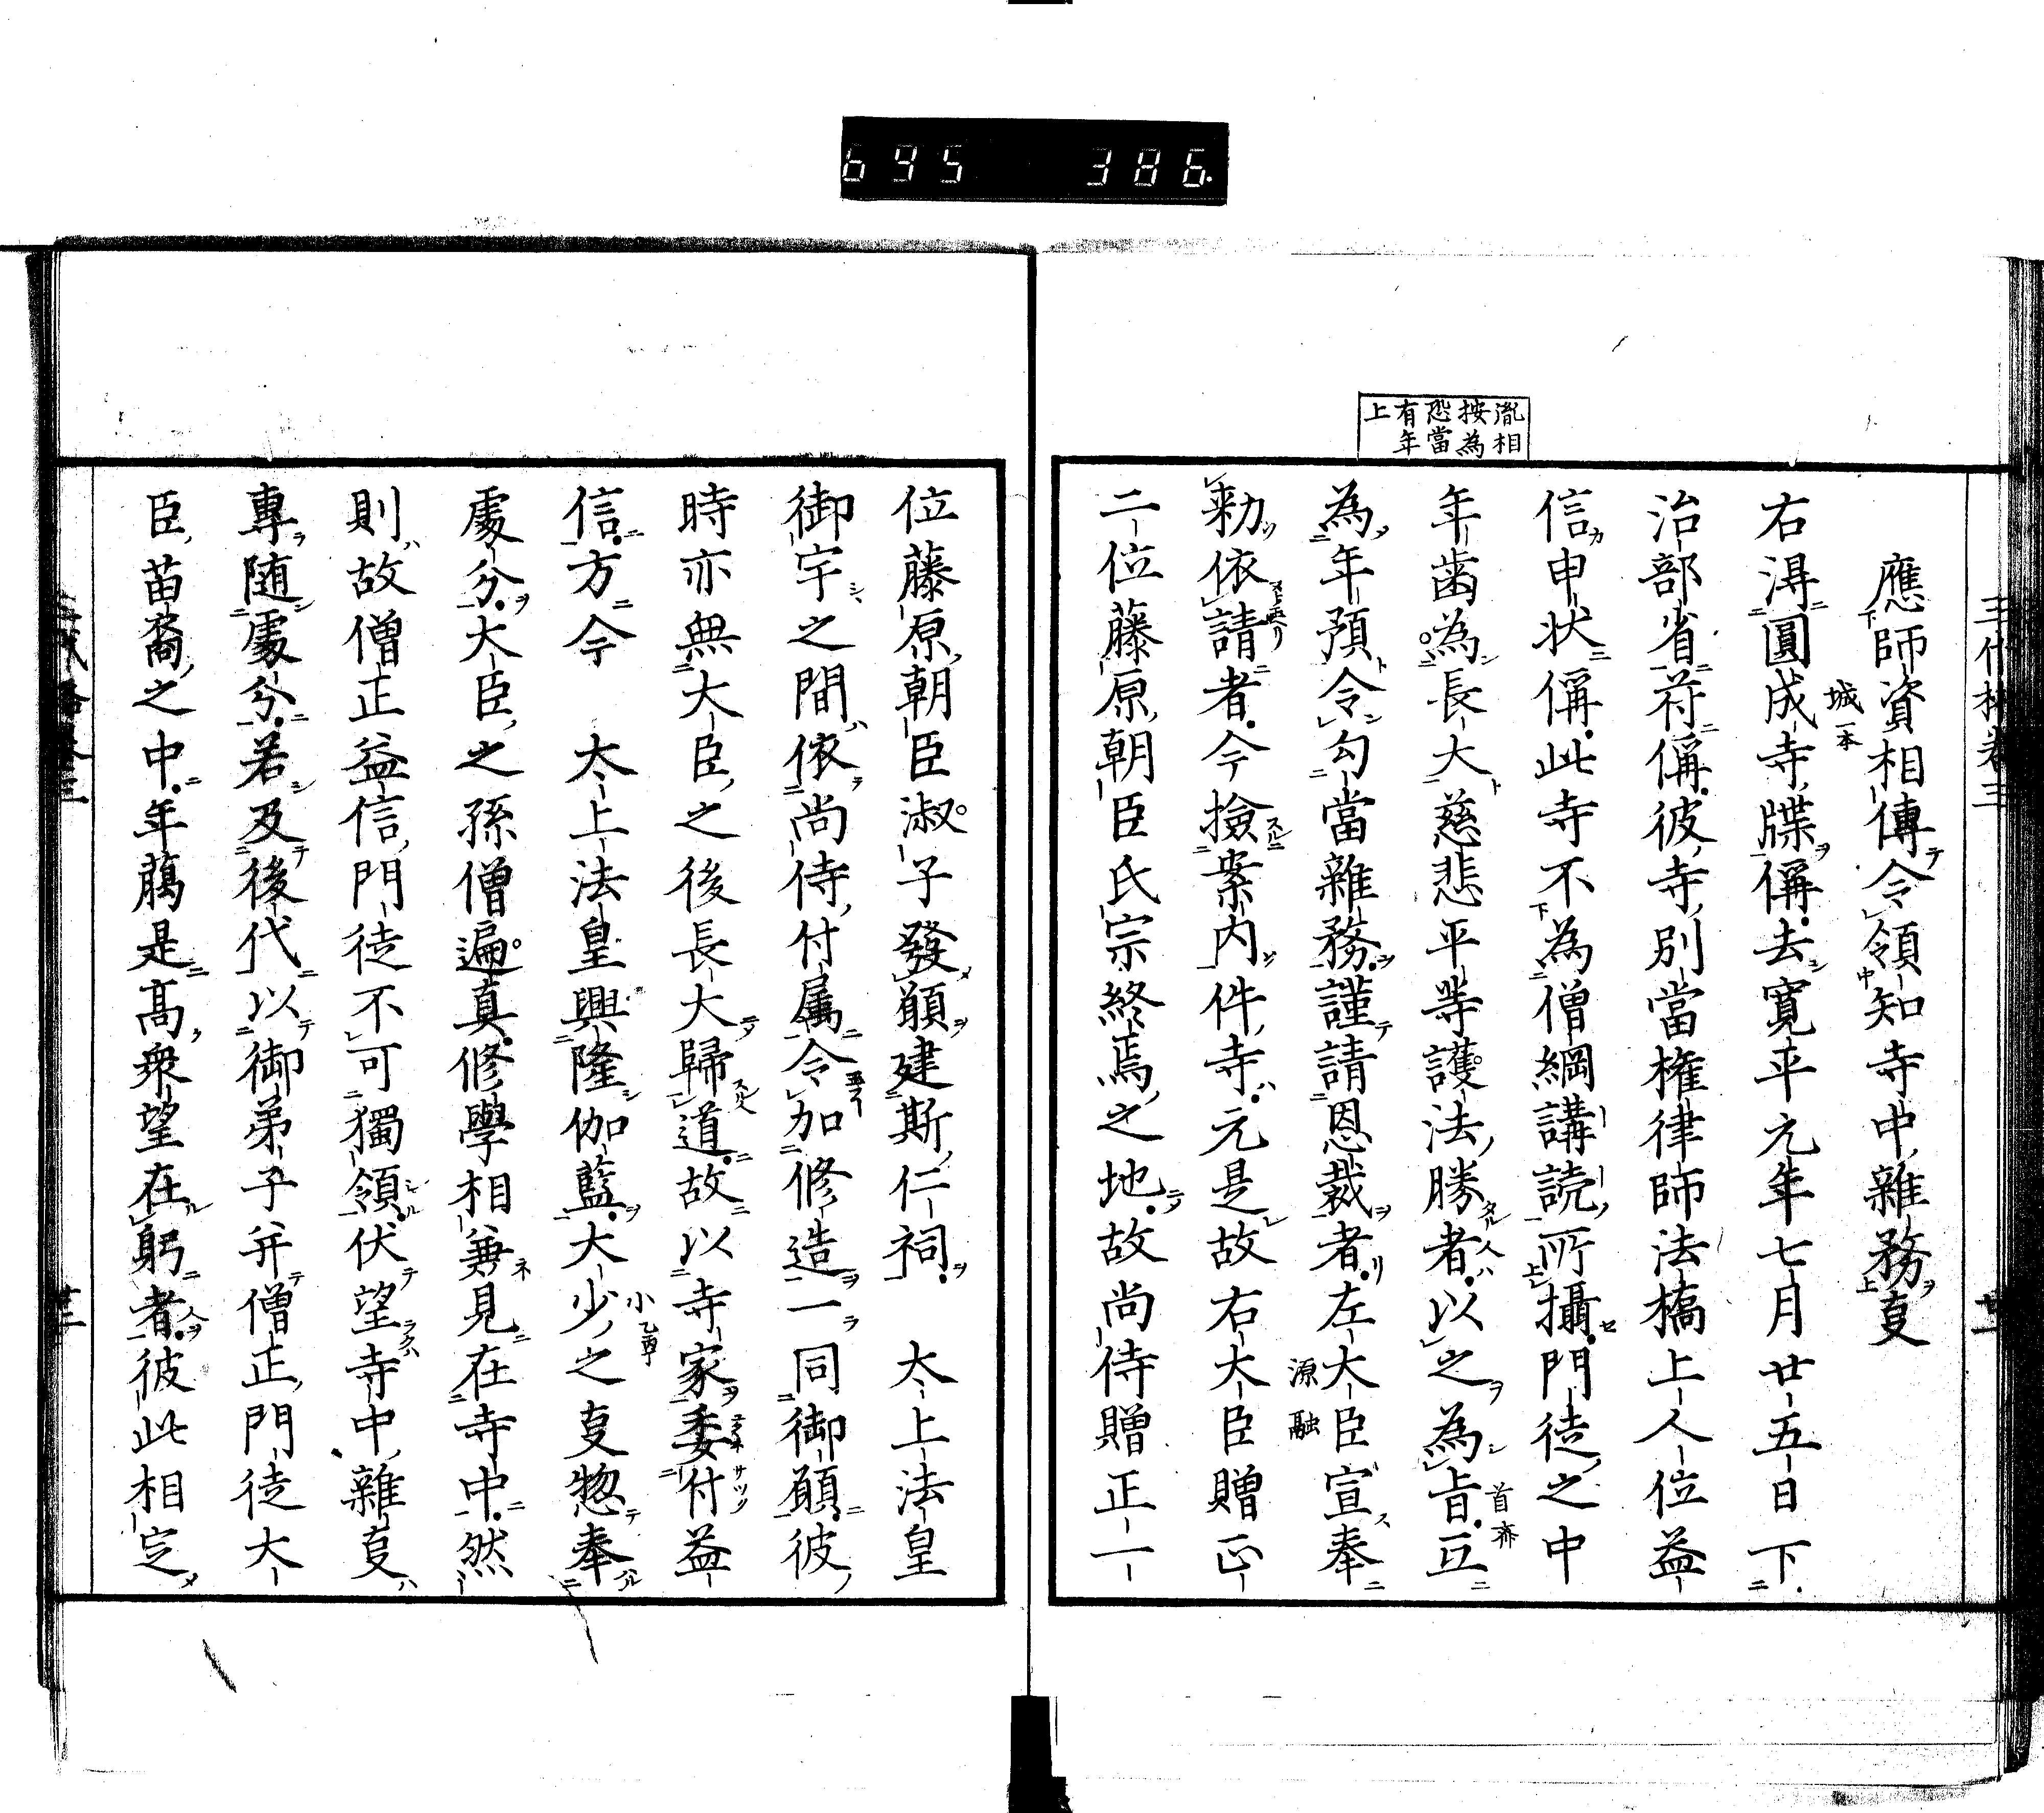 695 386
胤相
按為
恐當
有年
上
應師資相傳令領知寺中雜務事
右得圓成寺牒偁去寛平元年七月廿五日下
城一本
治部省符偁彼寺別當権律師法橋上人位益
信申状偁此寺不為僧綱講読所攝門徒之中
年歯為長大慈悲平等護法勝者以之為旨亘
首 亦
為年預令勾當雜務謹請恩裁者左大臣宣奉
源融
勅依請者今撿案内件寺元是故右大臣贈正一
二位藤原朝臣氏宗終焉之地故尚侍贈正一
位藤原朝臣淑子發願建斯仁祠 太上法皇
御宇之間依尚侍付属令加修造一同御願彼
時亦無大臣之後長大歸道故以寺家委付益
信方今 太上法皇興隆伽藍大少之事惣奉
小乙軍
處分大臣之孫僧遍真修學相兼見在寺中然
則故僧正益信門徒不可獨領伏望寺中雜事
專随處分若及後代以御弟子并僧正門徒大
臣苗裔之中年﨟是高衆望在躬者彼此相定